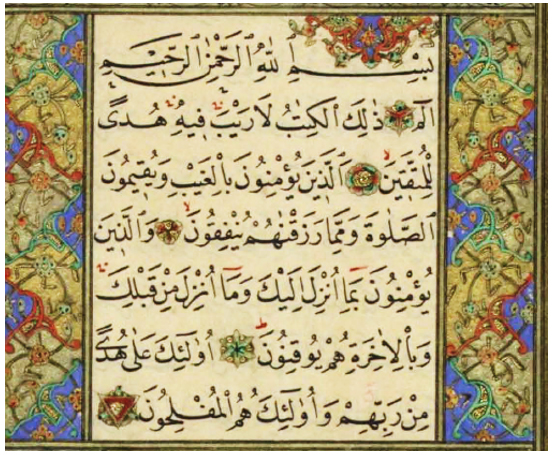 بِسْمِ ٱللَّهِ ٱلرَّحْمٰنِ ٱلرَّحِيمِ
الٓمٓ ذٰلِكَ ٱلْكِتٰبُ لَا رَيْبَ فِيهِ هُدًى
لِلْمُتَّقِينَ ٱلَّذِينَ يُؤْمِنُونَ بِالْغَيْبِ وَيُقِيمُونَ
ٱلصَّلٰوةَ وَمِمَّا رَزَقْنٰهُمْ يُنْفِقُونَ وَالَّذِينَ
يُؤْمِنُونَ بِمَٓا اُنْزِلَ اِلَيْكَ وَمَٓا اُنْزِلَ مِنْ قَبْلِكَ
وَبِالْاٰخِرَةِ هُمْ يُوقِنُونَ اُولٰٓئِكَ عَلٰى هُدًى
مِنْ رَبِّهِمْ وَاُولٰٓئِكَ هُمُ الْمُفْلِحُونَ